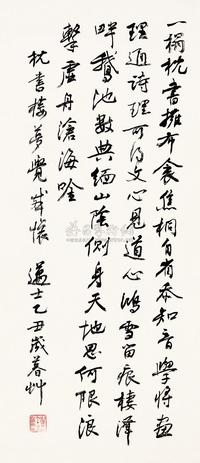 一榻枕書擁布衾焦桐自省忝知音學將畫
理通詩理可文心見道心鴻雪留痕棲澤
畔鵝池數典緬山陰側身天地思何限浪
擊虛舟滄海唫
枕書樓夢覺感懷 邁士乙丑歲暮艸